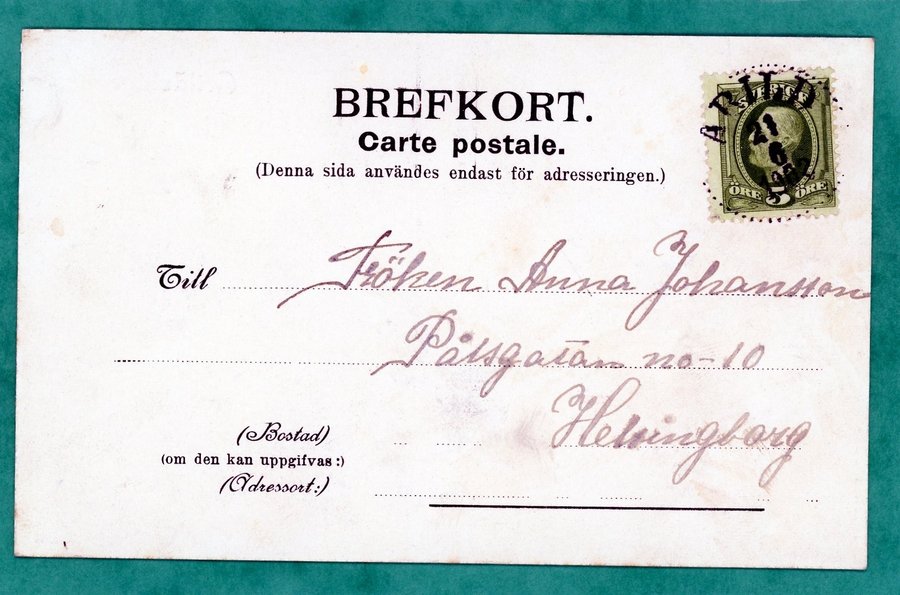 BREFKORT.
Carte postale.
(Denna sida användes endast för adresseringen.)
ARILD
21
6
1902
SVERIGE
ÖRE 5 ÖRE
Till Fröken Anna Johansson
Pålsgatan no-10
Helsingborg
(Bostad)
(om den kan uppgifvas:)
(Adressort:)